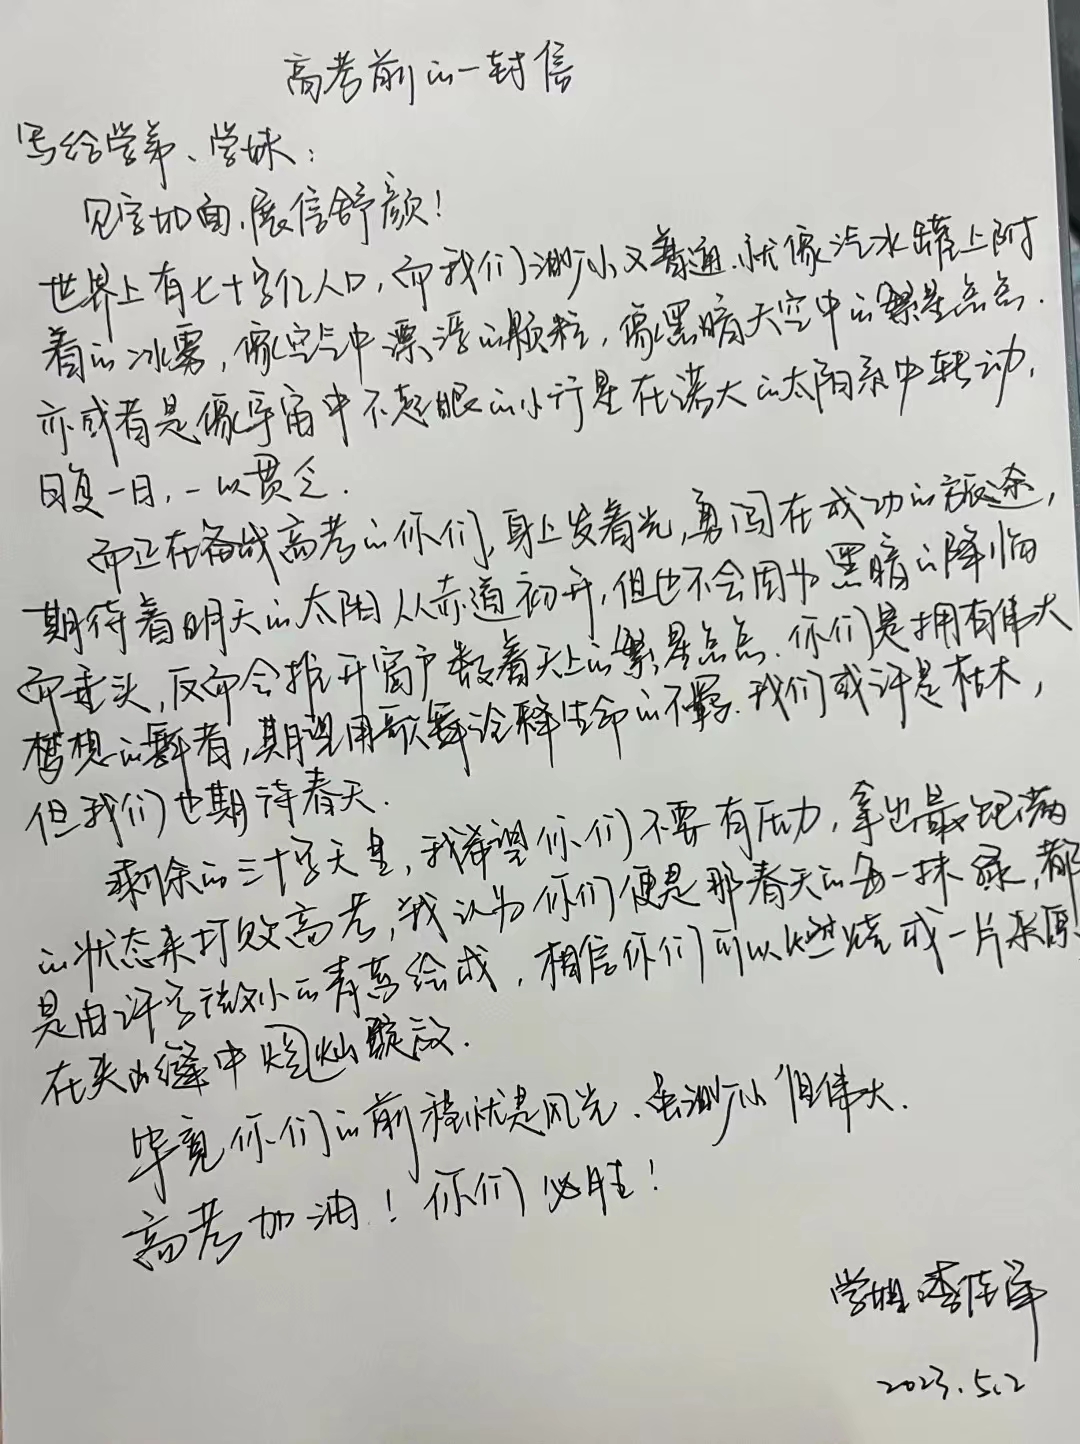 高考前的一封信
写给学弟、学妹：
见字如面，展信舒颜！
世界上有七十多亿人口，而我们渺小又普通，就像汽水罐上附
着的冰雾，像空气中漂浮的颗粒，像黑暗天空中的繁星点点.
亦或者是像宇宙中不起眼的小行星在诺大的太阳系中转动，
日复一日，一以贯之.
而正在备战高考的你们，身上发着光，勇闯在成功的旅途，
期待着明天的太阳从赤道初升，但也不会因为黑暗的降临
而垂头，反而会推开窗户数着天上的繁星点点.你们是拥有伟大
梦想的舞者，期望用歌舞诠释生命的不羁.我们或许是枯木，
但我们也期待春天.
剩余的三十多天里，我希望你们不要有压力，拿出最饱满
的状态来打败高考，我认为你们便是那春天的每一抹绿，都
是由许多微小的青葱绘成，相信你们可以燃烧成一片来原
在夹山缝中灿烂靛放.
毕竟你们的前程忧是风光.虽渺小但伟大.
高考加油！你们必胜！
学姐李佳
2023.5.2